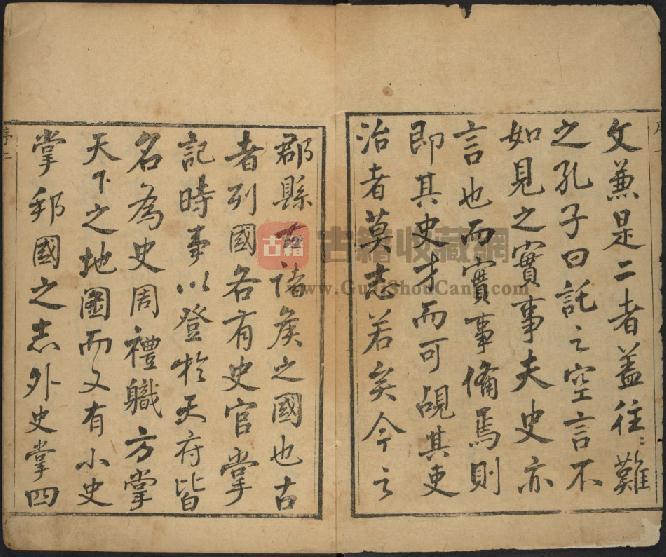 文兼是二者蓋往〻難
之孔子曰託之空言不
如見之實事夫史亦
言也而實事備焉則
即其史才而可覘其吏
治者莫志若矣今之
郡縣古諸侯之國也古
者列國各有史官掌
記時事以登於天府皆
名為史周禮職方掌
天下之地圖而又有小史
掌邦國之志外史掌四
序二
古籍
古籍收藏網
www.GuJiShouCang.com